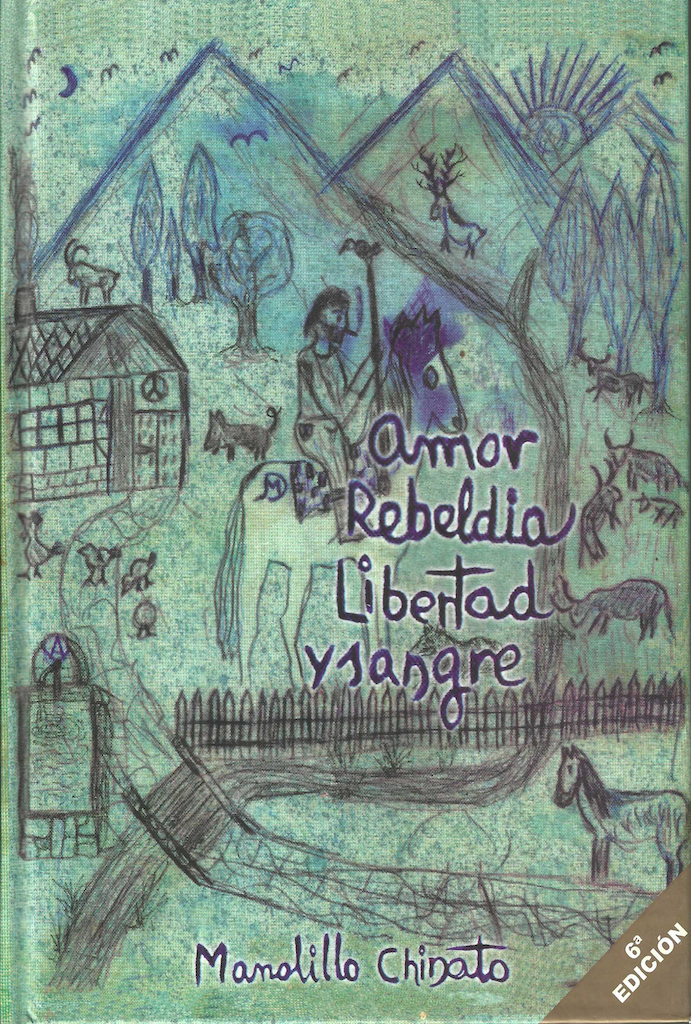 Amor
Rebeldia
Libertad
y sangre
Manolillo Chinato
6ª
EDICIÓN